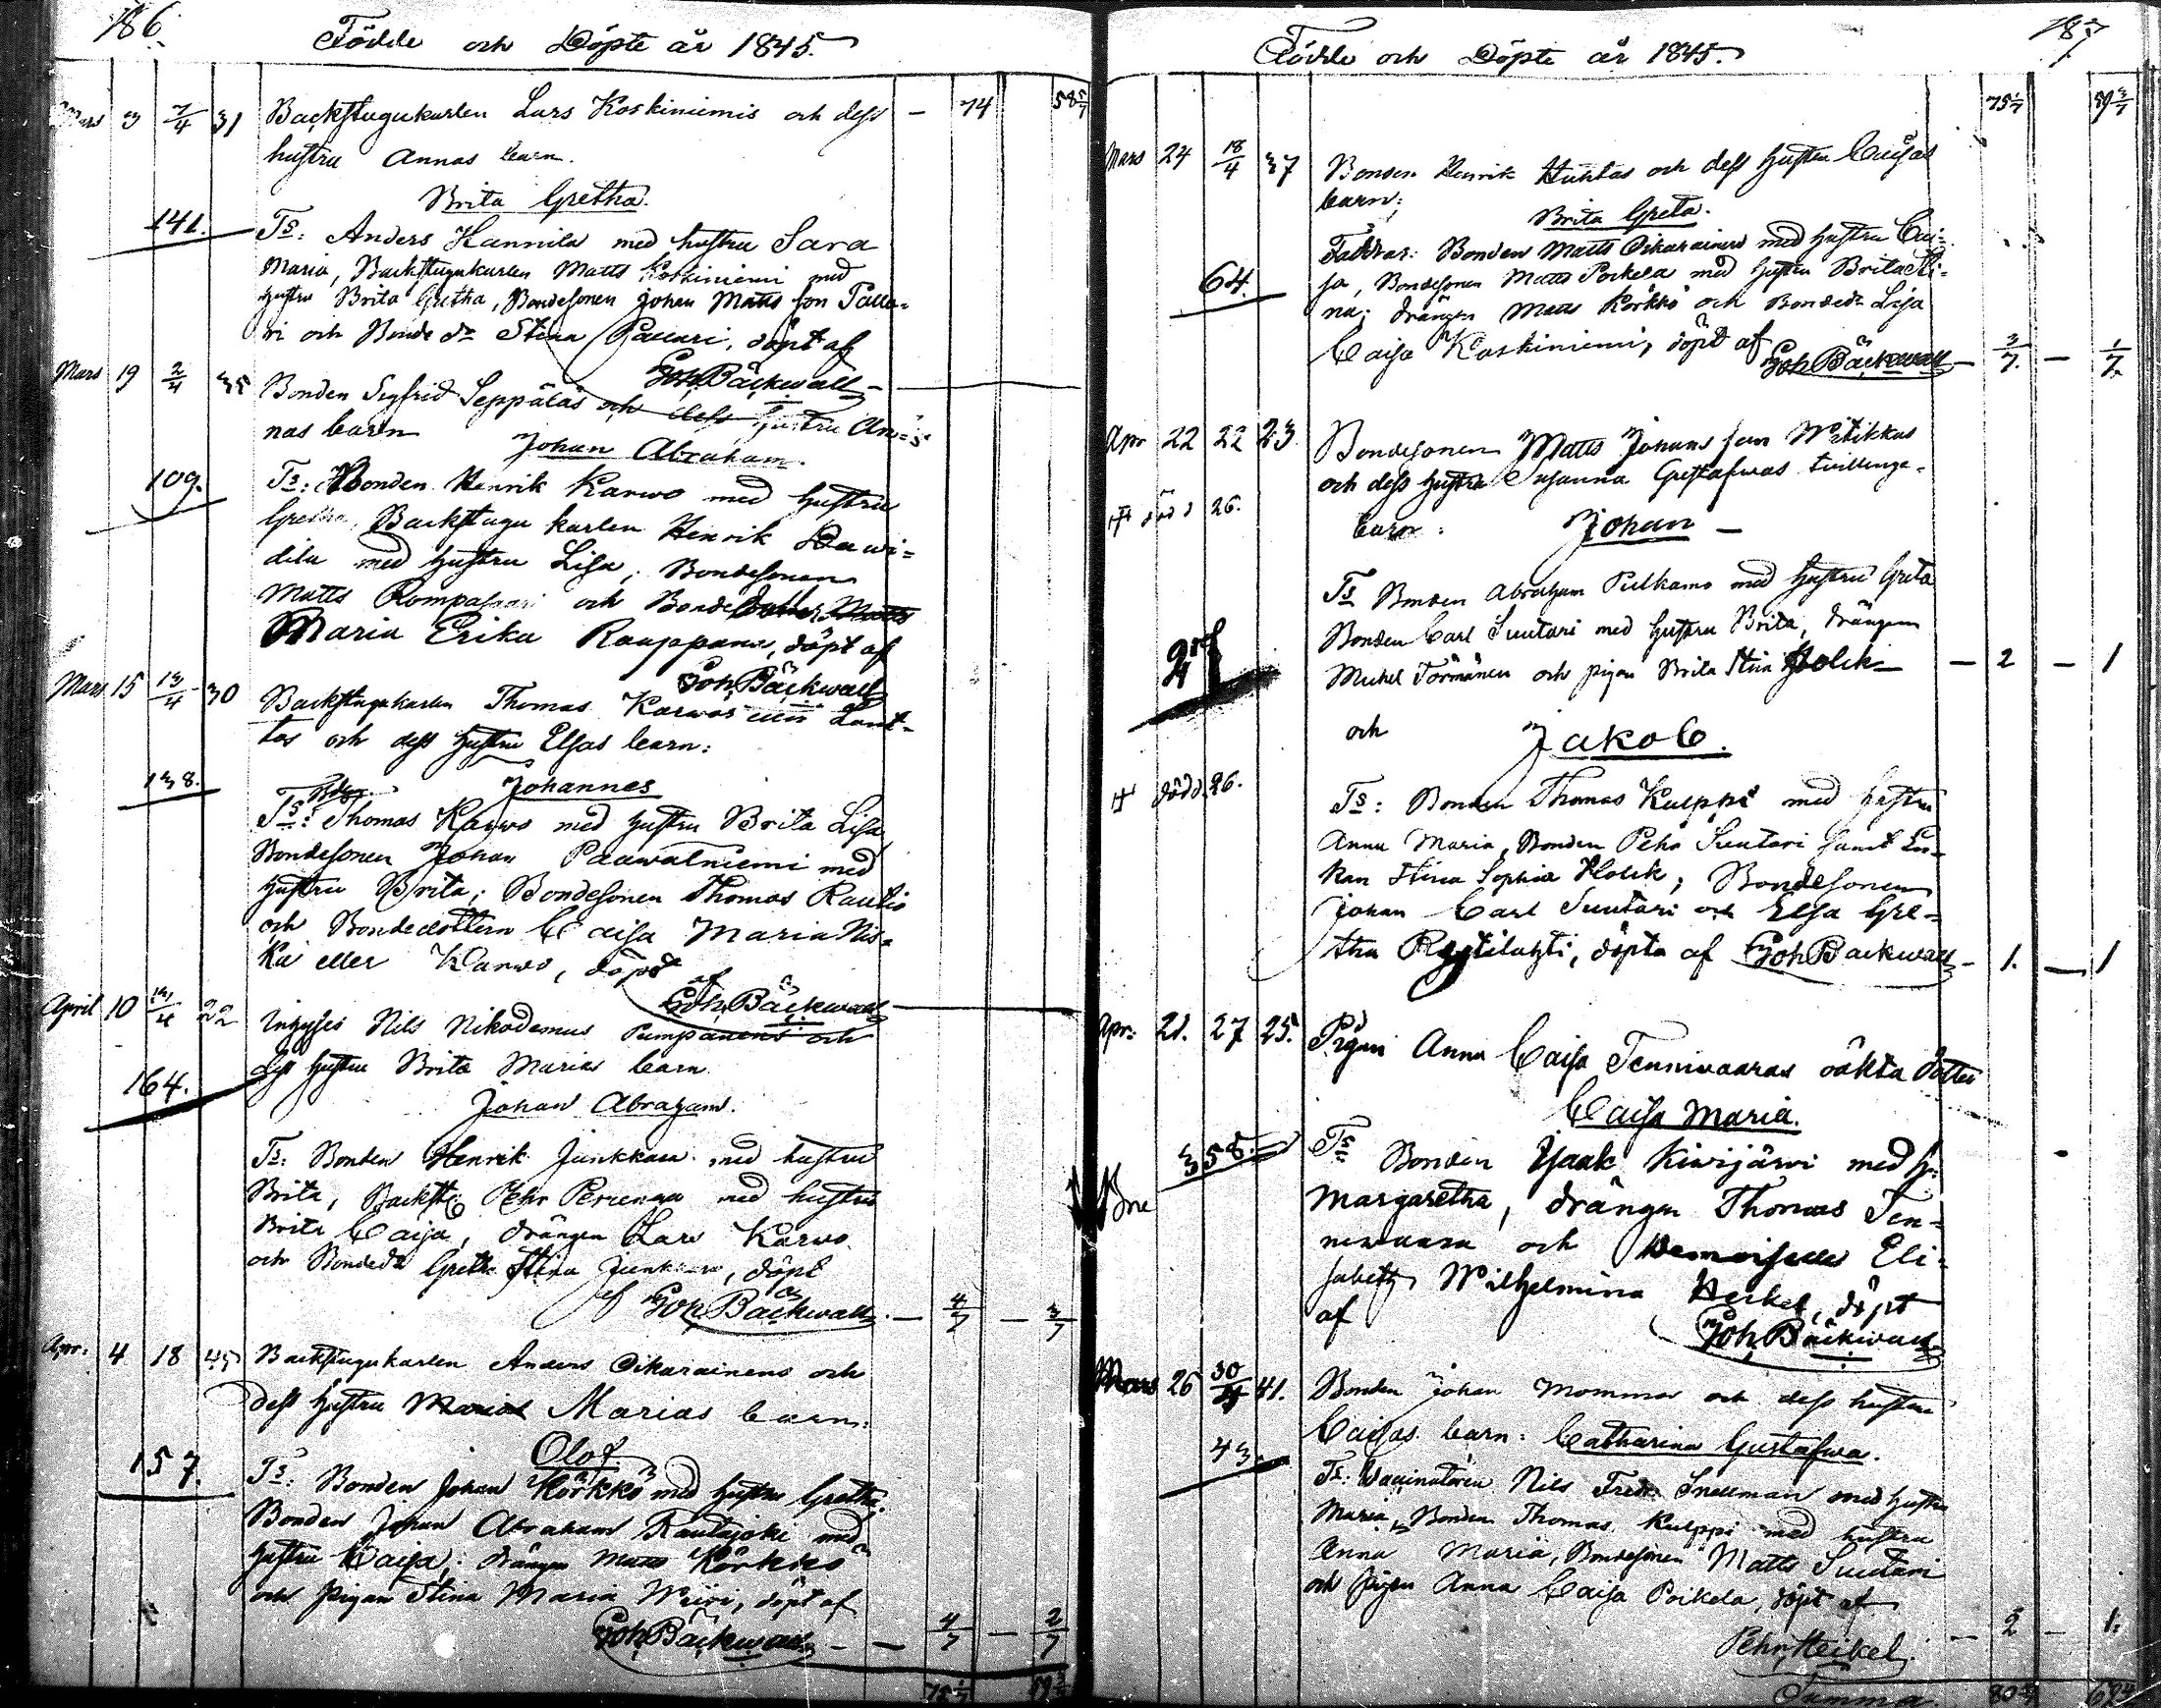 186.
Födde och Döpte år 1845.
74 58 5/7
Mars 3 7/4 31 Backstugukarlen Lars Koskiniemis och dess
hustru Annas barn.
Brita Gretha.
141. Ts: Anders Hannila med hustru Sara
Maria, Backstugukarlen Matts Koskiniemi med
hustru Brita Gretha, Bondesonen Johan Matts son Palla-
ri och Bonde dr Stina Pallari, döpt af
Joh Bäckwall
Mars 19 2/4 35 Bonden Sigfrid Seppäläs och dess hustru An-
nas barn
Johan Abraham.
109. Ts: Bonden Henrik Karwo med hustru
Gretha, Backstugu karlen Henrik Dawi-
dila med hustru Lisa; Bondesonen
Matts Rompasaari och Bonde
Maria Erika Rauppana, döpt af
Joh Bäckwall
Mars 15 13/4 30 Backstugukarlen Thomas Karwos
tos och dess hustru Elsas barn:
138. Johannes
Ts: Thomas Karwo med hustru Brita Lisa,
Bondesonen Johan Paawalniemi med
hustru Brita; Bondesonen Thomas Rautio
och Bondedottern Caisa Maria Nis-
ka eller Karwo, döpt af
Joh Bäckwall
April 10 13/4 22 Inhyses Nils Nikodemus Pumpanens och
dess hustru Brita Marias barn
164. Johan Abraham.
Ts: Bonden Henrik Junkkara med hustru
Brita, Backst: Pehr Perunga med hustru
Brita Caisa, drängen Lars Karwo
och Bondedr Greta Stina Junkkara, döpt
af Joh Bäckwall — 4/7 — 3/7
Apr: 4 18 45 Backstugukarlen Anders Oikarainens och
dess hustru Marias barn:
Olof
157. Ts: Bonden Johan Körkkö med hustru Gretha;
Bonden Johan Abraham Rautajoki med
hustru Caisa; drängen Matts Körkkö
och pigan Stina Maria Wiiri, döpt af
Joh Bäckwall — 4/7 — 2/7
75 1/7 59 3/7
187
Födde och Döpte år 1845.
75 1/7 59 3/7
Mars 24 18/4 37 Bonden Henrik Huhtas och dess hustru Caisas
barn;
Brita Greta.
Faddrar: Bonden Matts Oikarainen med hustru Cai-
64. sa, Bondesonen Matts Poikela med hustru Brita Sti-
na; drängen Matts Körkkö och Bondedr Lisa
Caisa Koskiniemi, döpt af
Joh Bäckwall — 3/7 — 1/7
Apr 22 22 23 Bondesonen Matts Johans son Witikkas
och dess hustru Susanna Gustafwas tvillinge-
död d 26. barn: Johan —
Ts Bonden Abraham Pulkamo med hustru Greta
Bonden Carl Suutari med hustru Brita, drängen
Michel Törmänen och pigan Brita Stina Holck — 2 — 1
och Jakob.
död d 26. Ts: Bonden Thomas Kulppi med hustru
Anna Maria, Bonden Pehr Suutari samt En-
kan Stina Sophia Holck; Bondesonen
Johan Carl Suutari och Elsa Gre-
tha Rystilahti, döpta af Joh Bäckwall — 1. — 1
Apr: 21. 27 25. Pigan Anna Caisa Tenniwaaras oäkta dotter
Caisa Maria.
358. Ts Bonden Isaak Kiwijärwi med h:
Margaretha, drängen Thomas Ten-
niwaara och Demoiselle Eli-
sabeth Wilhelmina Heikel, döpt
af Joh Bäckwall
Mars 26 30/4 41. Bonden Johan Mommos och dess hustru
Caisas barn: Catharina Gustafwa.
43. Ts: Vaccinatören Nils Fredr Snellman med hustru
Maria, Bonden Thomas Kulppi med hustru
Anna Maria, Bondesonen Matts Suutari
och pigan Anna Caisa Poikela, döpt af
Pehr Heikel. — 2 — 1.
Summa